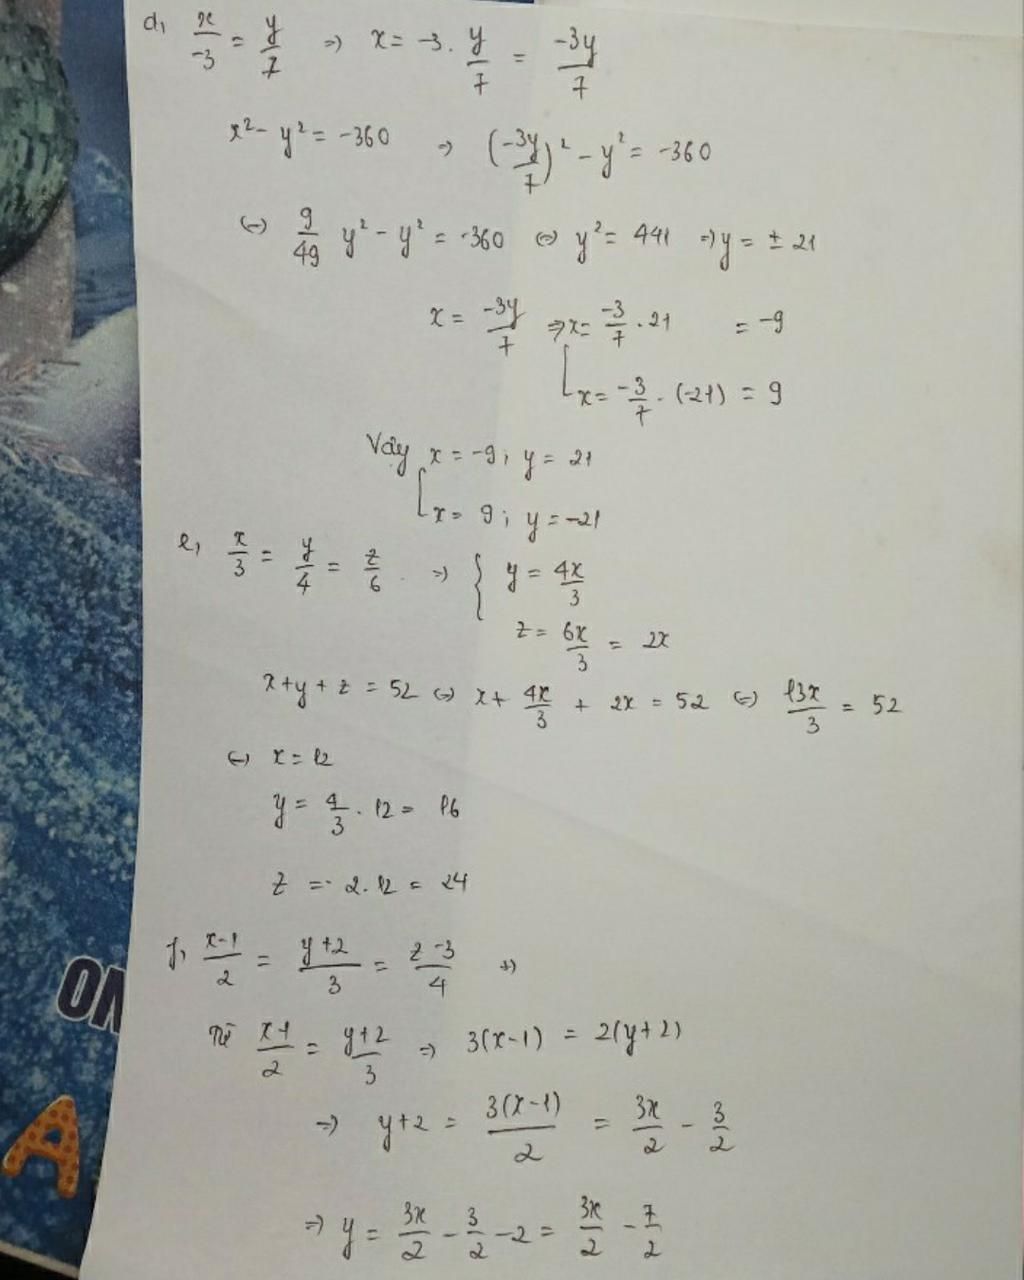 d, x/-3 = y/7 => x = -3 . y/7 = -3y/7
x² - y² = -360 => (-3y/7)² - y² = -360
<=> 9/49 y² - y² = -360 <=> y² = 441 => y = ± 21
x = -3y/7 => x = -3/7 . 21 = -9
x = -3/7 . (-21) = 9
Vậy x = -9 ; y = 21
x = 9 ; y = -21
e, x/3 = y/4 = z/6 . => { y = 4x/3
z = 6x/3 = 2x
x + y + z = 52 <=> x + 4x/3 + 2x = 52 <=> 13x/3 = 52
<=> x = 12
y = 4/3 . 12 = 16
z = 2. 12 = 24
f, x-1/2 = y+2/3 = z-3/4 =>
Từ x-1/2 = y+2/3 => 3(x-1) = 2(y+2)
=> y+2 = 3(x-1)/2 = 3x/2 - 3/2
=> y = 3x/2 - 3/2 - 2 = 3x/2 - 7/2
A